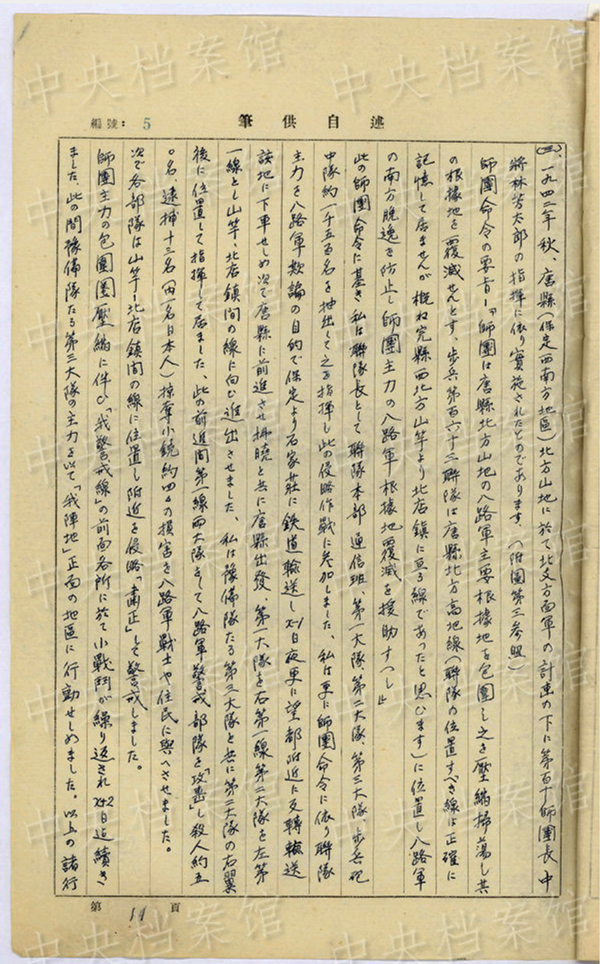 中央档案馆
編號： 5
筆供自述
(三)、一九四二年秋、唐縣(保定西南方地區)北方山地に於て北支方面軍の計画の下に第百十師團長 中
将林芳太郎の指揮に依り實施されたものであります。(附圖第三参照)
師團命令の要旨ー「師團は唐縣北方山地の八路軍主要根據地を包圍し之を壓縮掃蕩し其
の根據地を覆滅せんとす、歩兵第百六十三聯隊は唐縣北方高地線(聯隊の位置すべき線は正確に
記憶して居ませんが概ね完縣西北方山竿より北店鎮に亘る線であったと思ひます)に位置し八路軍
の南方脱逸を防止し師團主力の八路軍根據地覆滅を援助すべし」
此の師團命令に基き私は聯隊長として聯隊本部 通信班、第一大隊 第二大隊 第三大隊、歩兵砲
中隊約一千五百名を抽出して之を指揮し此の侵略作戰に参加しました、私は更に師團命令に依り聯隊
主力を八路軍欺諭の目的で保定より石家莊に鉄道輸送しX-1日夜更に望都附近に反轉輸送
該地に下車せしめ次で唐縣に前進させ拂曉と共に唐縣出發、第一大隊を右第一線第二大隊を左第
一線とし山竿、北店鎮間の線に向ひ進出させました、私は豫備隊たる第三大隊と共に第二大隊の右翼
後に位置して指揮して居ました、此の前進間第一線両大隊をして八路軍警戒部隊を「攻擊」し殺人約五
〇名、逮捕十三名(内一名日本人)掠奪小銃約四〇の損害を八路軍戰士や住民に與へさせました。
次で各部隊は山竿ー北店鎮間の線に位置し附近を侵略「粛正」して警戒しました。
師團主力の包圍圏壓縮に伴ひ「我警戒線」の前面各所に於て小戰鬥が繰り返されX+2日迄續き
ました、此の間豫備隊たる第三大隊の主力を以て「我陣地」正面の地區に行動せしめました。以上の諸行
第 11 頁